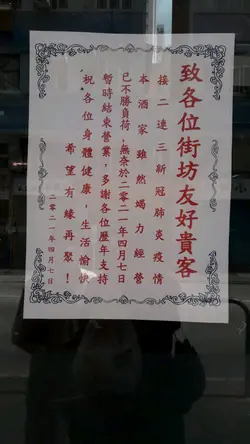 致各位街坊友好貴客
接二連三新冠肺炎疫情
本酒家雖然竭力經營
已不勝負荷，無奈於二零二一年四月七日
暫時結束營業，多謝各位歷年支持
祝各位身體健康，生活愉快
希望有緣再聚！
二零二一年四月七日